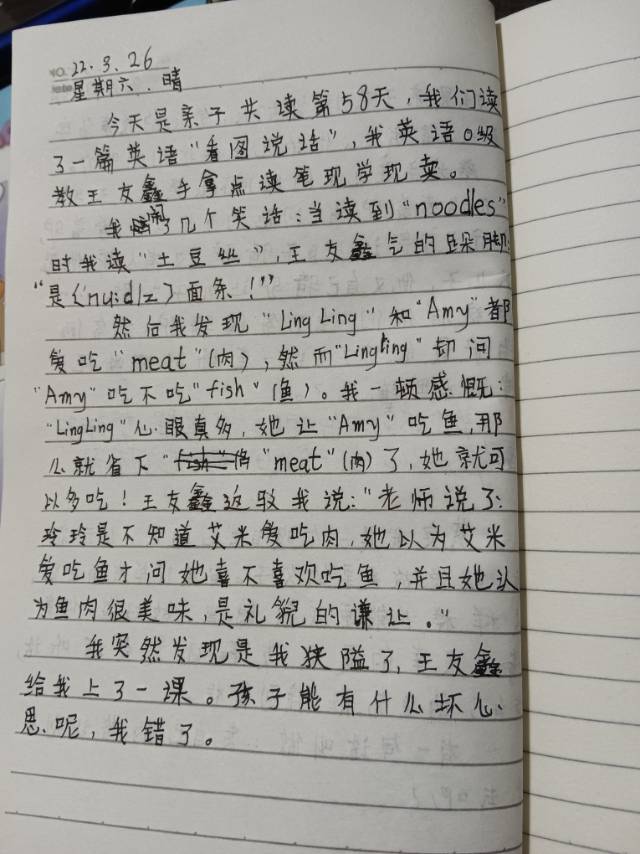 NO. 22.3.26
星期六.晴
今天是亲子共读第58天，我们读
了一篇英语“看图说话”，我英语0级
教王友鑫手拿点读笔现学现卖。
我闹了几个笑话：当读到“noodles”
时我读“土豆丝”，王友鑫气的跺脚：
“是《nu:dlz》面条！”
然后我发现“Ling Ling”和“Amy”都
爱吃“meat”(肉)，然而“Lingling”却问
“Amy”吃不吃“fish”(鱼)。我一顿感慨：
“LingLing”心眼真多，她让“Amy”吃鱼，那
么就省下“meat”(肉)了，她就可
以多吃！王友鑫返驳我说：“老师说了：
玲玲是不知道艾米爱吃肉，她以为艾米
爱吃鱼才问她喜不喜欢吃鱼，并且她认
为鱼肉很美味，是礼貌的谦让。”
我突然发现是我狭隘了，王友鑫
给我上了一课。孩子能有什么坏心
思呢，我错了。